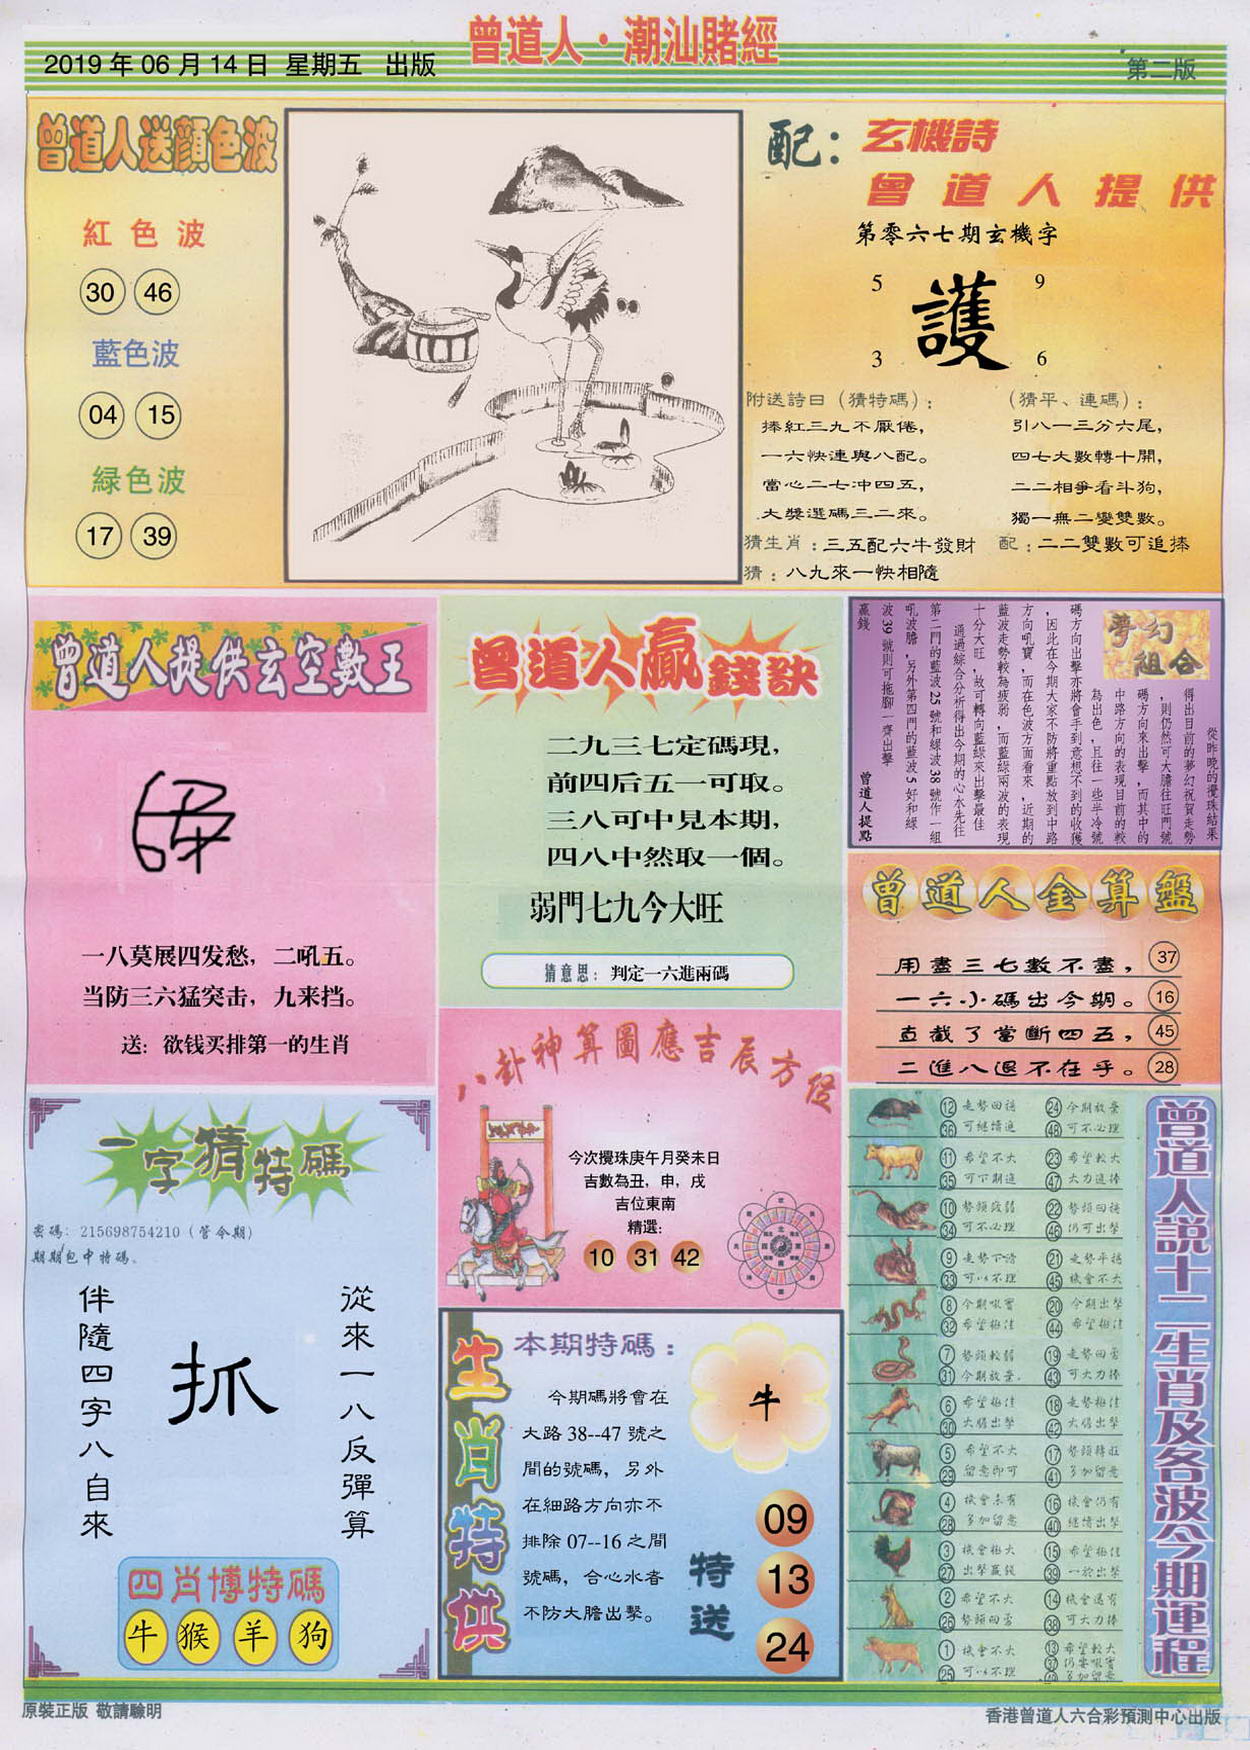 曾道人·潮汕賭經
2019年06月14日 星期五 出版
第二版
曾道人送顔色波
紅色波
30 46
藍色波
04 15
緑色波
17 39
配：玄機詩
曾道人提供
第零六七期玄機字
5 9
護
3 6
附送詩曰（猜特碼）：
捧紅三九不厭倦，
一六快連與八配。
當心二七冲四五，
大獎選碼三二來。
（猜平、連碼）：
引八一三分六尾，
四七大數轉十開，
二二相爭看斗狗，
獨一無二變雙數。
猜生肖：三五配六牛發財
配：二二雙數可追捧
猜：八九來一快相隨
曾道人提供玄空數王
一八莫展四发愁，二吼五。
当防三六猛突击，九来挡。
送：欲钱买排第一的生肖
曾道人贏錢訣
二九三七定碼現，
前四后五一可取。
三八可中見本期，
四八中然取一個。
弱門七九今大旺
猜意思：判定一六進兩碼
夢幻
組合
從昨晚的攪珠結果
得出目前的夢幻祝賀走勢
，則仍然可大膽往旺門號
碼方向來出擊，而其中的
中路方向的表現目前的較
為出色，且往一些半冷號
碼方向出擊亦將會手到意想不到的收獲
，因此在今期大家不防將重點放到中路
方向吼寶，而在色波方面看來，近期的
藍波走勢較為疲弱，而藍綠兩波的表現
十分大旺，故可轉向藍綠來出擊最佳
通過綜合分析得出今期的心水先往
第二門的藍波25號和綠波38號作一組
吼波膽，另外第四門的藍波5好和綠
波39號則可拖腳一齊出擊
贏錢
曾道人提點
曾道人金算盤
用盡三七數不盡，37
一六小碼出今期。16
直截了當斷四五，45
二進八退不在乎。28
八卦神算圖應吉辰方位
今次攪珠庚午月癸未日
吉數為丑，申，戌
吉位東南
精選：
10 31 42
一字猜特碼
密碼：215698754210（管今期）
期期包中特碼。
從來一八反彈算
抓
伴隨四字八自來
四肖博特碼
牛 猴 羊 狗
生肖特供
本期特碼：
今期碼將會在
大路38--47號之
間的號碼，另外
在細路方向亦不
排除07--16之間
號碼，合心水者
不防大膽出擊。
牛
特送
09
13
24
曾道人説十二生肖及各波今期運程
12 走勢回穩 24 今期放棄
36 可繼續追 48 可不必理
11 希望不大 23 希望較大
35 可下期追 47 大力追捧
10 勢頭疲弱 22 勢頭回穩
34 可不必理 46 仍可出擊
9 走勢下滑 21 走勢平穩
33 可以不理 45 機會不大
8 今期吼寶 20 今期出擊
32 希望極佳 44 希望極佳
7 勢頭較弱 19 走勢回雲
31 今期放棄 43 可大力捧
6 希望極佳 18 走勢極佳
30 大膽出擊 42 大膽出擊
5 希望不大 17 勢頭轉旺
29 留意即可 41 多加留意
4 機會未有 16 機會仍有
28 多加留意 40 繼續出擊
3 機會極大 15 希望極佳
27 出擊贏錢 39 一於出擊
2 希望不大 14 機會還有
26 勢頭回雲 38 可大力捧
1 機會不大 13 希望較大
25 可以不理 37 仍要吼寶
49 多加留意
原裝正版 敬請驗明
香港曾道人六合彩預測中心出版